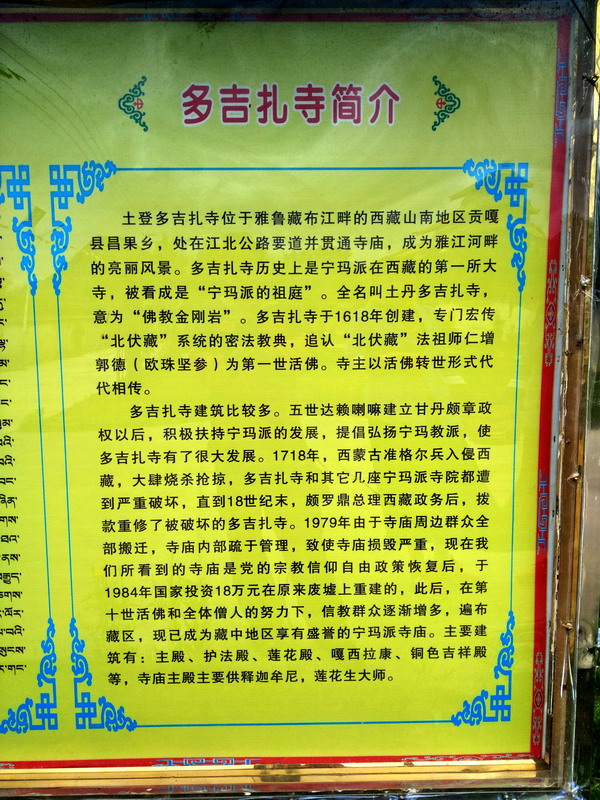 多吉扎寺简介
土登多吉扎寺位于雅鲁藏布江畔的西藏山南地区贡嘎
县昌果乡，处在江北公路要道并贯通寺庙，成为雅江河畔
的亮丽风景。多吉扎寺历史上是宁玛派在西藏的第一所大
寺，被看成是“宁玛派的祖庭”。全名叫土丹多吉扎寺，
意为“佛教金刚岩”。多吉扎寺于1618年创建，专门宏传
“北伏藏”系统的密法教典，追认“北伏藏”法祖师仁增
郭德（欧珠坚参）为第一世活佛。寺主以活佛转世形式代
代相传。
多吉扎寺建筑比较多。五世达赖喇嘛建立甘丹颇章政
权以后，积极扶持宁玛派的发展，提倡弘扬宁玛教派，使
多吉扎寺有了很大发展。1718年，西蒙古准格尔兵入侵西
藏，大肆烧杀抢掠，多吉扎寺和其它几座宁玛派寺院都遭
到严重破坏，直到18世纪末，颇罗鼐总理西藏政务后，拨
款重修了被破坏的多吉扎寺。1979年由于寺庙周边群众全
部搬迁，寺庙内部疏于管理，致使寺庙损毁严重，现在我
们所看到的寺庙是党的宗教信仰自由政策恢复后，于
1984年国家投资18万元在原来废墟上重建的，此后，在第
十世活佛和全体僧人的努力下，信教群众逐渐增多，遍布
藏区，现已成为藏中地区享有盛誉的宁玛派寺庙。主要建
筑有：主殿、护法殿、莲花殿、嘎西拉康、铜色吉祥殿
等，寺庙主殿主要供释迦牟尼，莲花生大师。